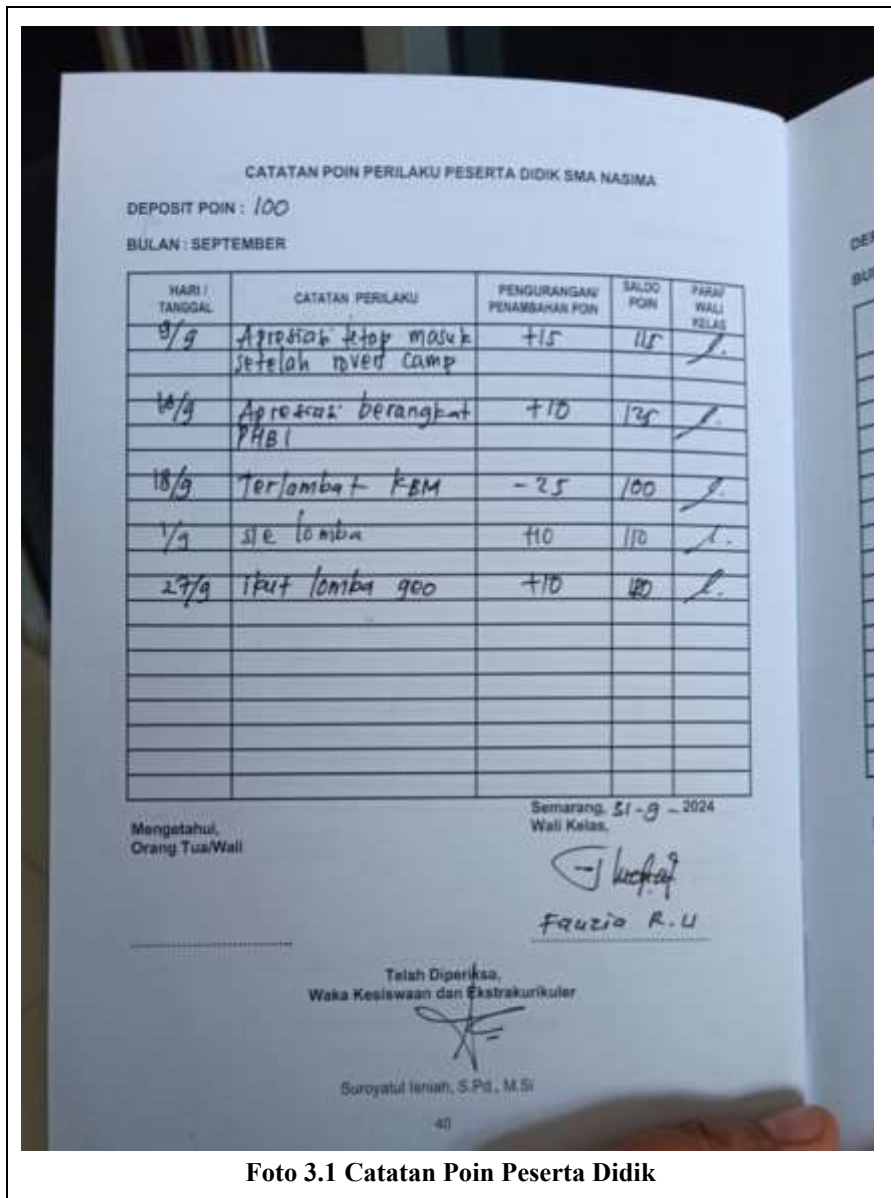 CATATAN POIN PERILAKU PESERTA DIDIK SMA NASIMA
DEPOSIT POIN : 100
BULAN : SEPTEMBER
HARI / TANGGAL CATATAN PERILAKU PENGURANGAN/ PENAMBAHAN POIN SALDO POIN PARAF WALI KELAS
9/9 Apresiasi tetap masuk +15 115
setelah rover camp
Apresiasi berangkat +10 125
PHBI
18/9 Terlambat KBM - 25 100
lomba +10 110
27/9 ikut lomba geo +10 120
Semarang, 31-9-2024
Mengetahui, Wali Kelas,
Orang Tua/Wali
Fauzia R.U
Telah Diperiksa,
Waka Kesiswaan dan Ekstrakurikuler
Suroyatul Isniah, S.Pd., M.Si
40
Foto 3.1 Catatan Poin Peserta Didik